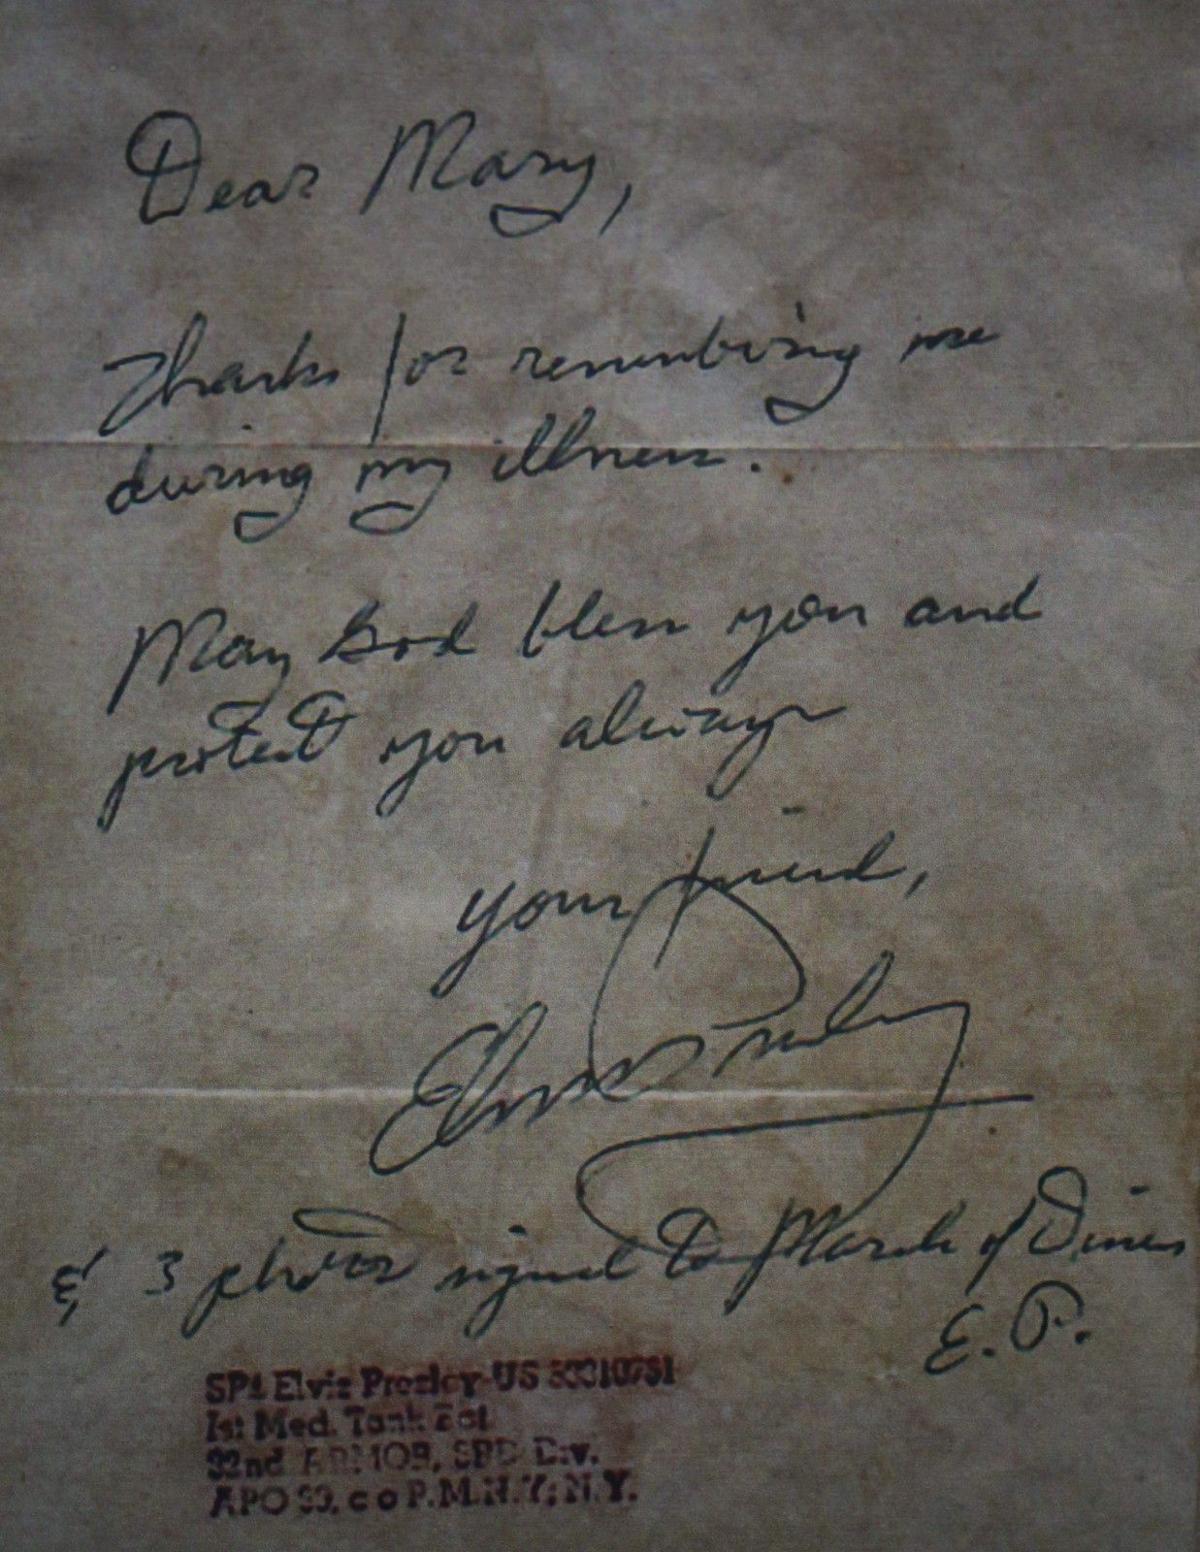 Dear Mary,
Thanks for remembering me
during my illness.
May God bless you and
protect you always
your friend,
Elvis Presley
& 3 photos signed to March of Dimes
E.P.
SP4 Elvis Presley US 53310761
1st Med. Tank Bat.
32nd ARMOR, 3RD Div.
APO 39, c o P.M.N.Y; N.Y.